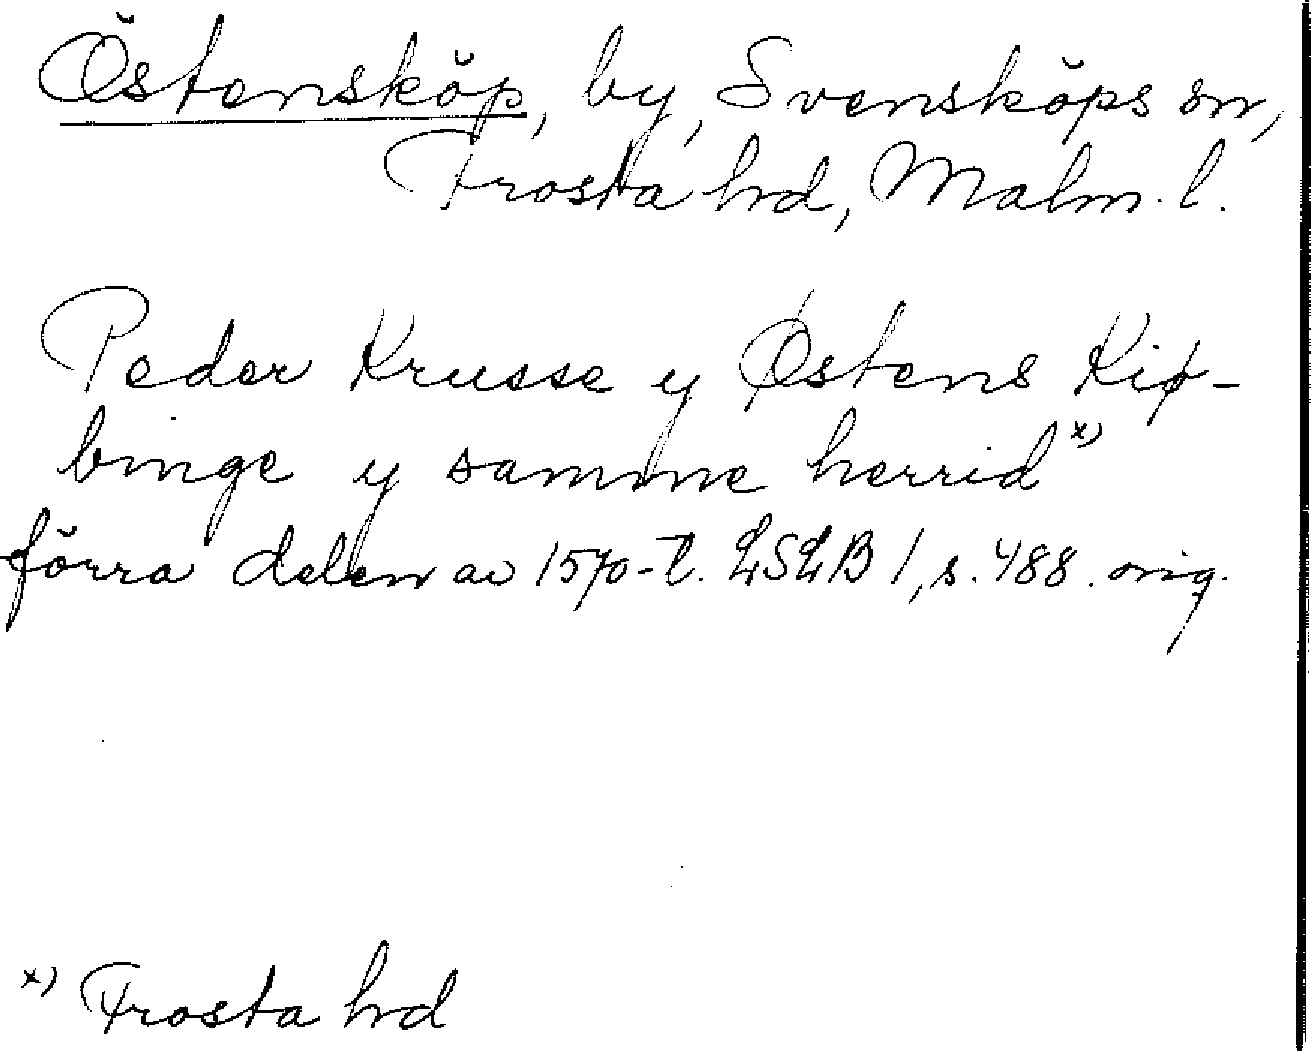 Östensköp, by, Svensköps sn,
Frosta hd, Malm. l.
Peder Krusse y Østens Kiø-
binge y samme herrid x)
förra delen av 1570-t. LSLB 1, s. 488. orig.
x) Frosta hd